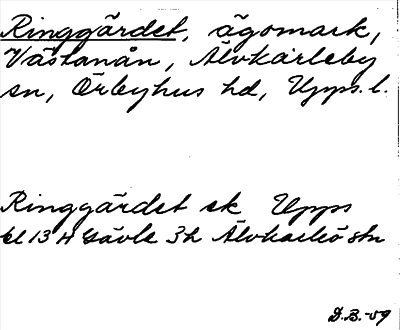 Ringgärdet, ägomark,
Västanån, Älvkarleby
sn, Örbyhus hd, Upps. l.
Ringgärdet ek Upps
bl 13 H Gävle 3h Älvkarleö stn
D.B.-59